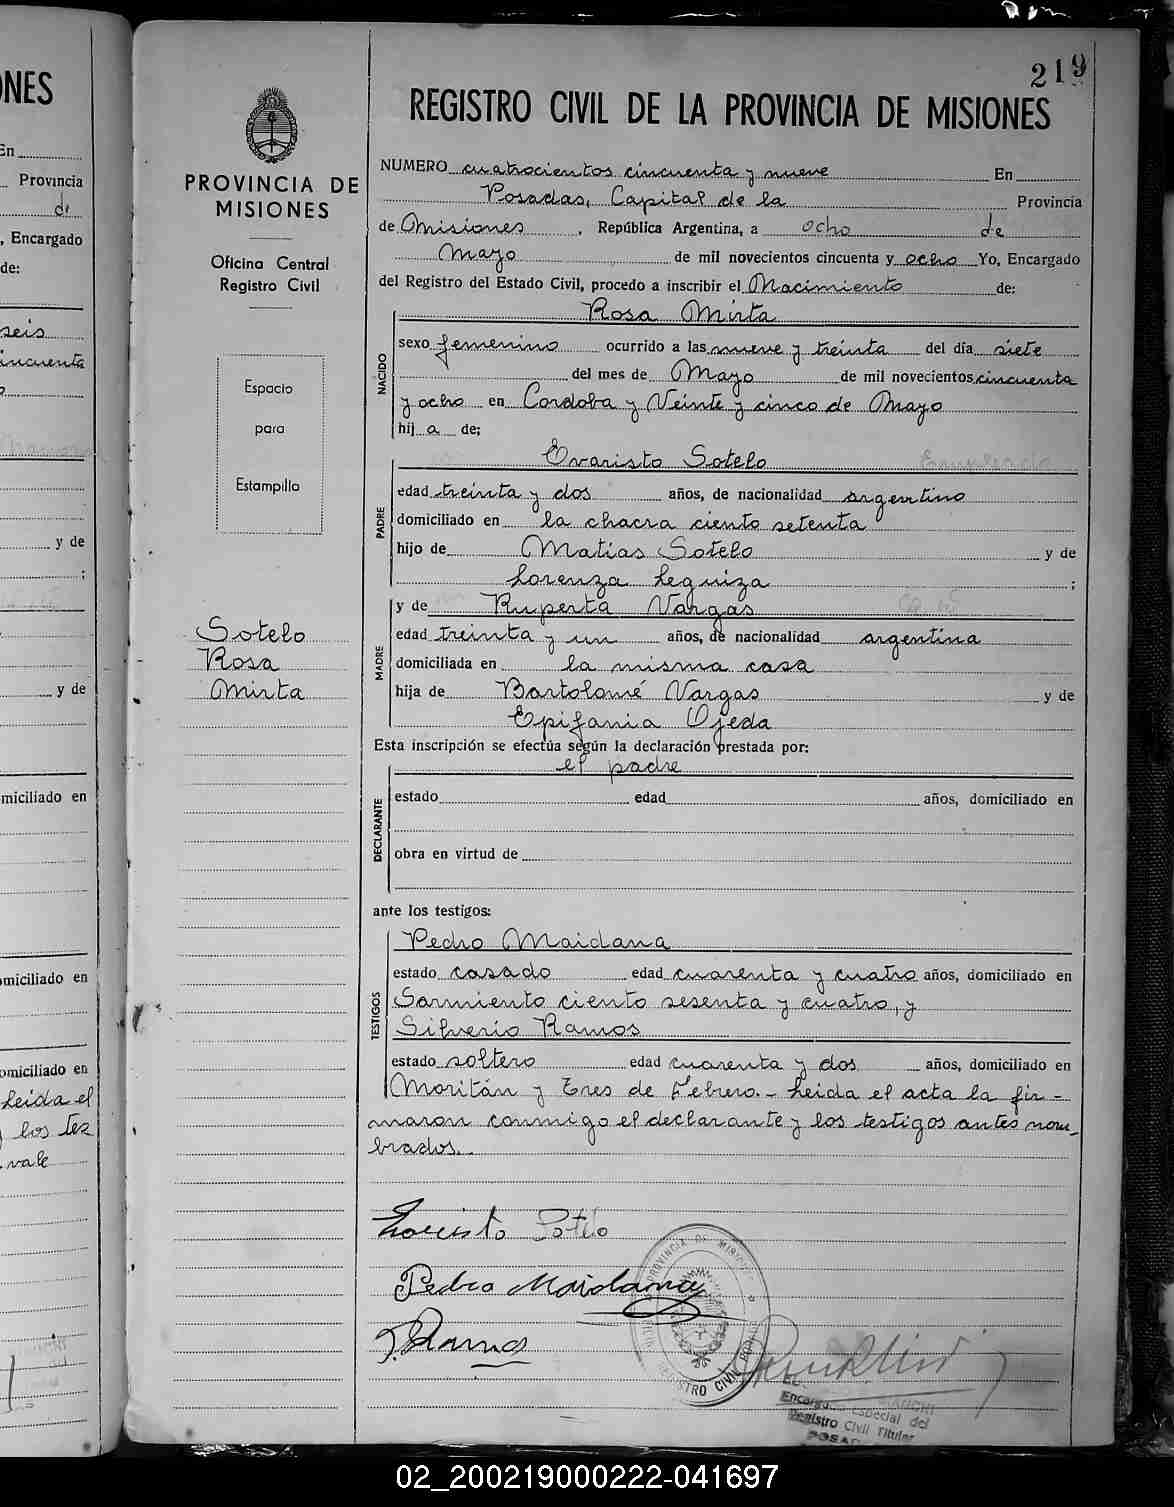 ONES
En
Provincia
de
, Encargado
de:
seis
cincuenta
y de
;
y de
miciliado en
omiciliado en
omiciliado en
Leida el
y los tes
vale
219
PROVINCIA DE
MISIONES
Oficina Central
Registro Civil
Espacio
para
Estampilla
Sotelo
Rosa
Mirta
REGISTRO CIVIL DE LA PROVINCIA DE MISIONES
NUMERO cuatrocientos cincuenta y nueve En
Posadas, Capital de la Provincia
de Misiones, República Argentina, a ocho de
Mayo de mil novecientos cincuenta y ocho Yo, Encargado
del Registro del Estado Civil, procedo a inscribir el Nacimiento de:
NACIDO
Rosa Mirta
sexo femenino ocurrido a las nueve y treinta del día siete
del mes de Mayo de mil novecientos cincuenta
y ocho en Cordoba y Veinte y cinco de Mayo
hij a de;
PADRE
Evaristo Sotelo
edad treinta y dos años, de nacionalidad argentino
domiciliado en la chacra ciento setenta
hijo de Matias Sotelo y de
Lorenza Leguiza ;
y de Ruperta Vargas
MADRE
edad treinta y un años, de nacionalidad argentina
domiciliada en la misma casa
hija de Bartolomé Vargas y de
Epifania Ojeda
Esta inscripción se efectúa según la declaración prestada por:
el padre
DECLARANTE
estado edad años, domiciliado en
obra en virtud de
ante los testigos:
TESTIGOS
Pedro Maidana
estado casado edad cuarenta y cuatro años, domiciliado en
Sarmiento ciento sesenta y cuatro, y
Silverio Ramos
estado soltero edad cuarenta y dos años, domiciliado en
Moritán y Tres de Febrero.- Leida el acta la fir-
maron conmigo el declarante y los testigos antes nom-
brados.
Evaristo Sotelo
Pedro Maidana
S. Ramos
PROVINCIA DE MISIONES
REGISTRO CIVIL
Encargado Especial del
Registro Civil Titular
POSADAS
02_200219000222-041697